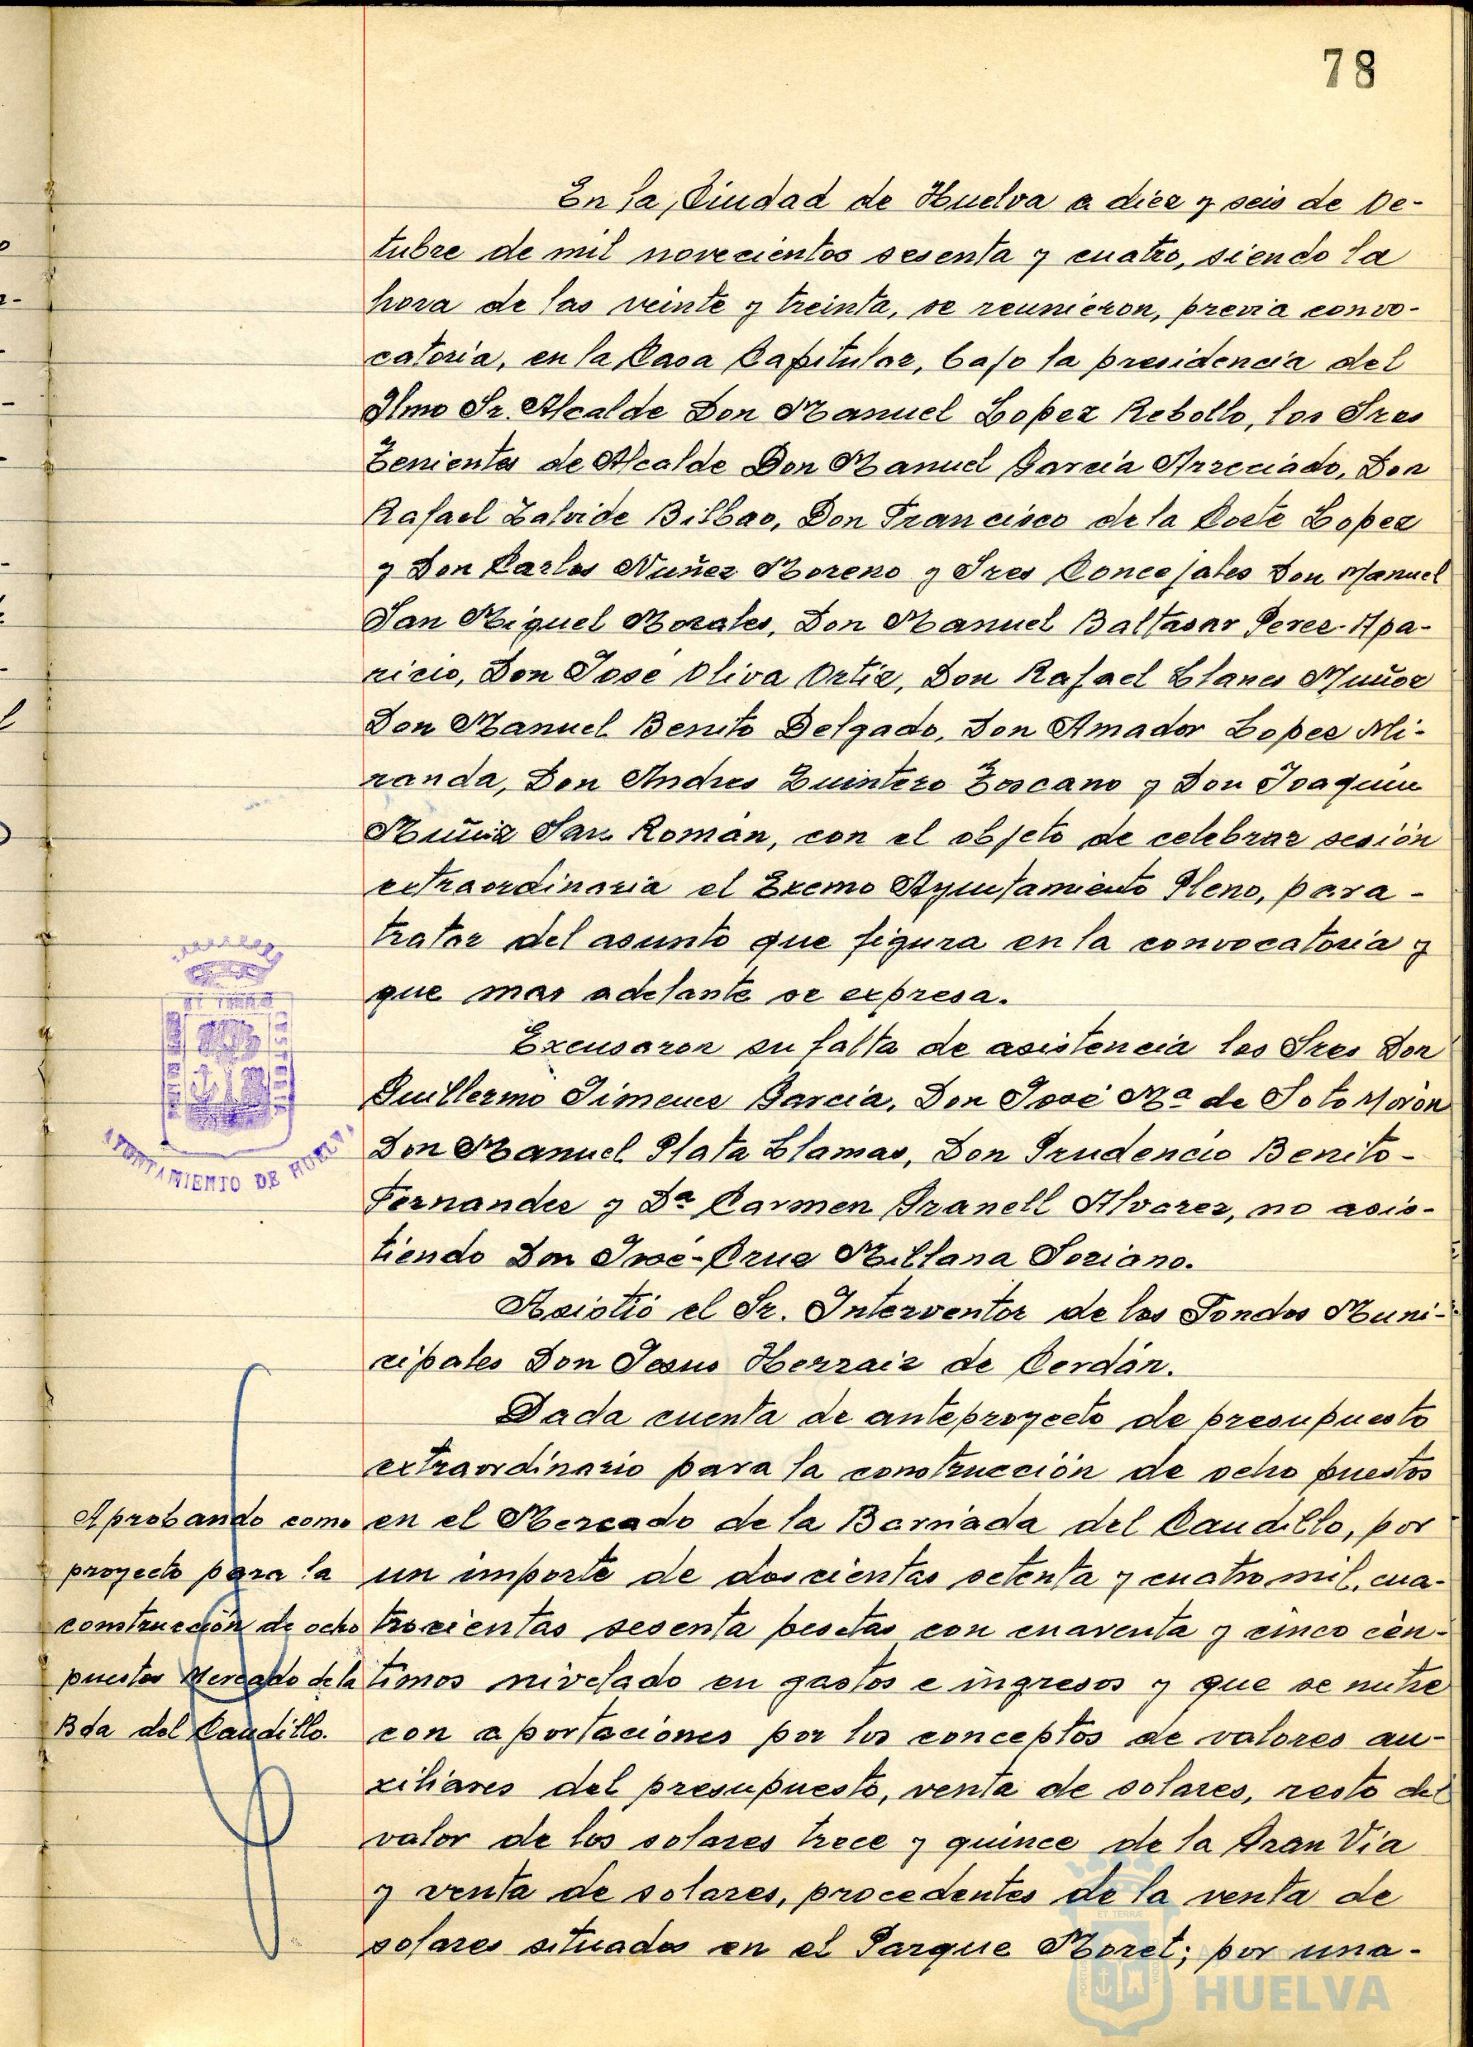 78
En la Ciudad de Huelva a diez y seis de Oc-
tubre de mil novecientos sesenta y cuatro, siendo la
hora de las veinte y treinta, se reunieron, previa convo-
catoria, en la Casa Capitular, bajo la presidencia del
Ilmo Sr. Alcalde Don Manuel Lopez Rebollo, los Sres
Tenientes de Alcalde Don Manuel García Arreciado, Don
Rafael Zalvide Bilbao, Don Francisco de la Corte Lopez
y Don Carlos Nuñez Moreno y Sres Concejales Don Manuel
San Miguel Morales, Don Manuel Baltasar Perez-Apa-
ricio, Don José Oliva Ortiz, Don Rafael Llanes Muñoz
Don Manuel Benito Delgado, Don Amador Lopez Mi-
randa, Don Andres Quintero Toscano y Don Joaquín
Muñiz San Román, con el objeto de celebrar sesión
extraordinaria el Excmo Ayuntamiento Pleno, para-
tratar del asunto que figura en la convocatoria y
que mas adelante se expresa.
Excusaron su falta de asistencia los Sres Don
Guillermo Jimenez García, Don José Mª de Soto Morón
Don Manuel Plata Llamas, Don Prudencio Benito-
Fernandez y Dª Carmen Granell Alvarez, no asis-
tiendo Don José-Cruz Millana Soriano.
Asistió el Sr. Interventor de los Fondos Muni-
cipales Don Jesus Herraiz de Cerdán.
Dada cuenta de anteproyecto de presupuesto
extraordinario para la construcción de ocho puestos
en el Mercado de la Barriada del Caudillo, por
un importe de doscientas setenta y cuatro mil, cua-
trocientas sesenta pesetas con cuarenta y cinco cén-
timos nivelado en gastos e ingresos y que se nutre
con aportaciones por los conceptos de valores au-
xiliares del presupuesto, venta de solares, resto del
valor de los solares trece y quince de la Gran Vía
y venta de solares, procedentes de la venta de
solares situados en el Parque Moret; por una-
Aprobando como
proyecto para la
construcción de ocho
puestos Mercado de la
Bda del Caudillo.
AYUNTAMIENTO DE HUELVA
HUELVA